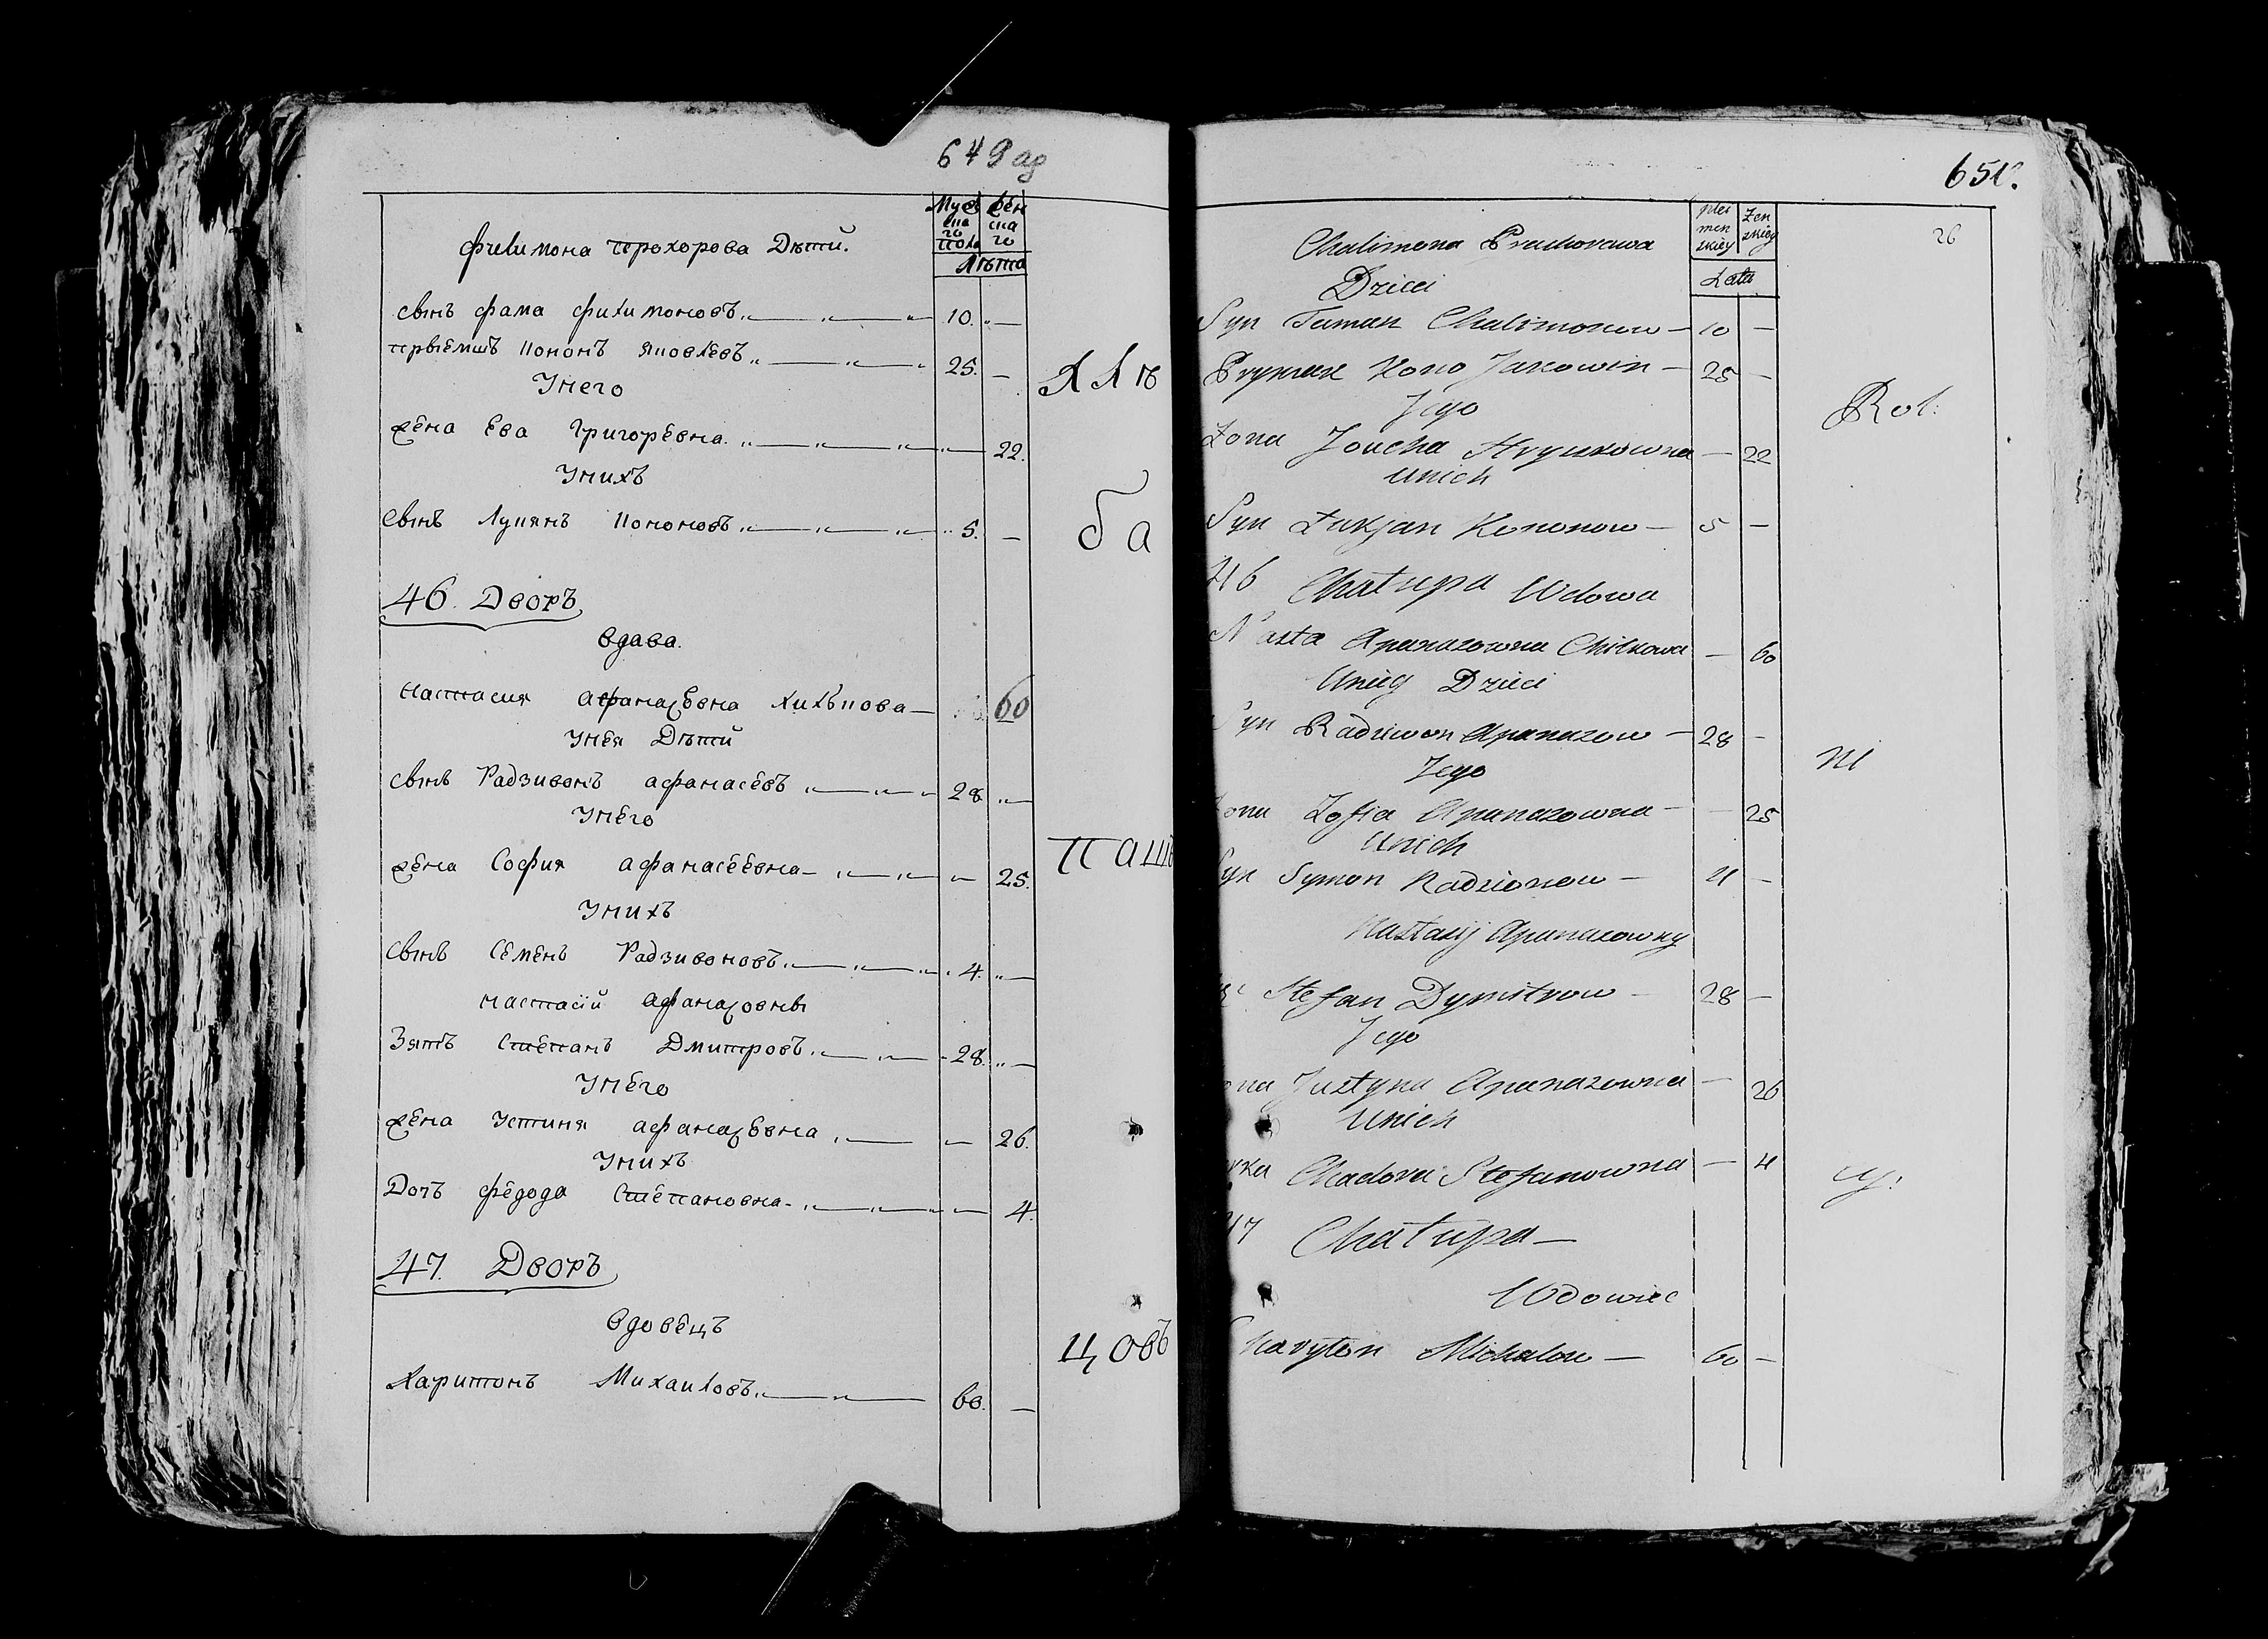 649 ад
Муже
ска
го
пола
жен
ска
го
Лѣта
филимона прохорова Дѣти.
сынъ фама филимоновъ 10. —
Кононъ яковлевъ 25. —
Унего
жена Ева Григорьевна 22.
Унихъ
сынъ Лукянъ Кононовъ 5. —
46. Дворъ
вдава.
настасия афанасьевна хилькова — 60
Унея Дѣти
сынъ Радзивонъ афанасевъ 28 —
Унего
жена София афанасеевна — 25.
Унихъ
сынъ Семенъ Радзивоновъ 4. —
настасiй афанасовны
Зять Степанъ Дмитровъ 28. —
Унего
жена Устиня афанасьевна — 26.
Унихъ
Дочь Степановна — 4.
47. Дворъ
вдовецъ
Харитонъ Михаиловъ 60. —
ба
паш
цовъ
651.
26
męz
zkiey
Zen
zkiey
Lata
Chalimona Prachorawa
Dzieci
Syn Taman Chalimonow — 10 —
Prymak Kono Jakowin — 25 —
Jego
Zona Joucha Hryszkowna — 22
Unich
Syn Łukjan Kononow — 5 —
46 Chałupa Wdowa
Nasta Apanazowna Chilkowa — 60
Unieg Dzieci
Syn Radziwon Apanazow — 28 —
Jego
ona Zofia Apanazowna — — 25
Unich
Syn Symon Radzionow — 4 —
Nastasij Apanazowny
Stefan Dymitrow — 28 —
Jego
ona Justyna Apanazowna — 26
Unich
Chadora Stefanowna — 4
47 Chałupa —
Wdowiec
Charyton Michalow — 60 —
Rol.
ni
cy.